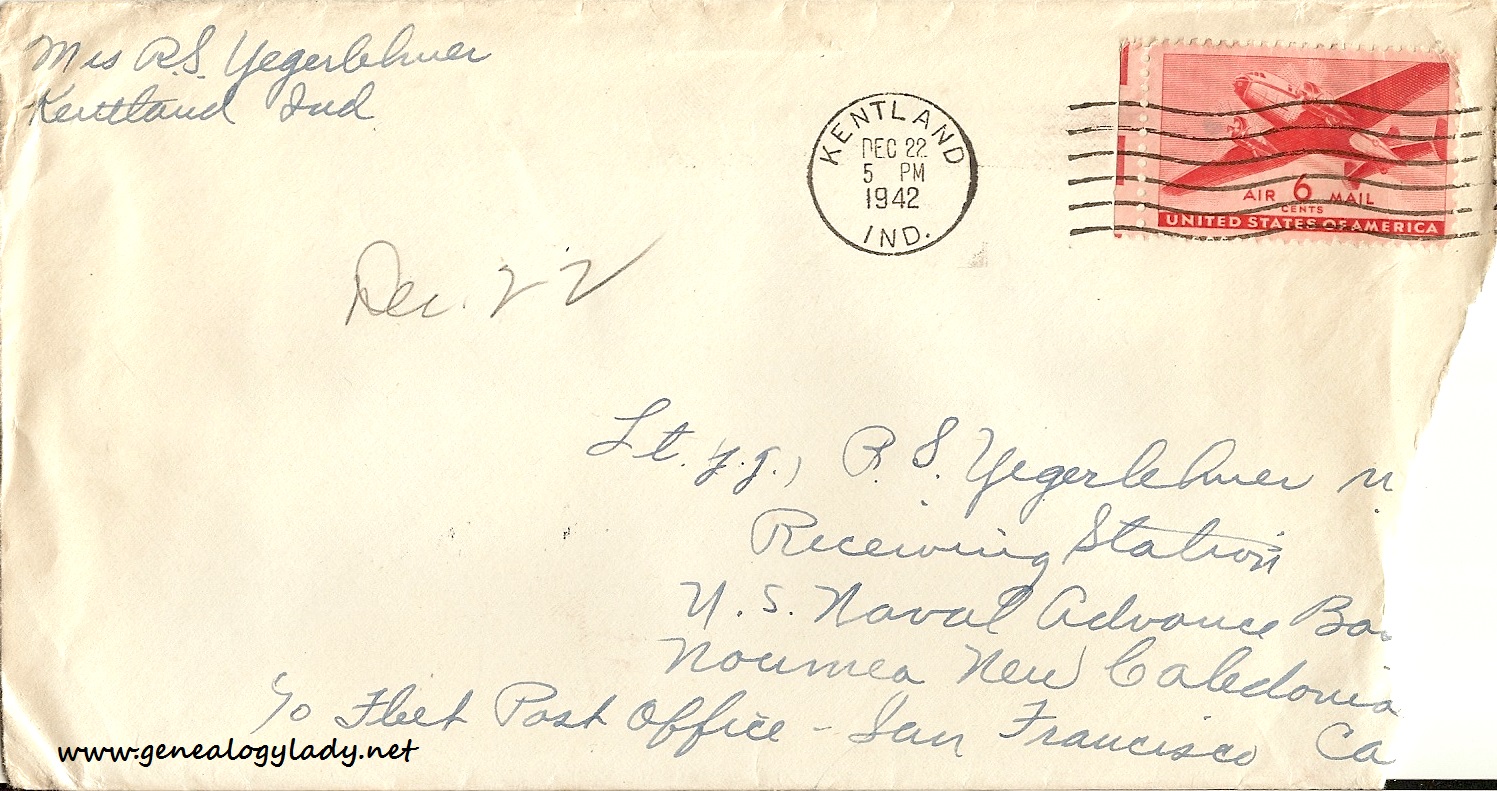 Mrs R.S. Yegerlehner
Kentland Ind
KENTLAND
DEC 22
5 PM
1942
IND.
AIR 6 MAIL
CENTS
UNITED STATES OF AMERICA
Dec. 22
Lt. j.g., R. S. Yegerlehner
Receiving Station
U. S. Naval Advance
Noumea New Caledonia
c/o Fleet Post Office - San Francisco Ca
www.genealogylady.net